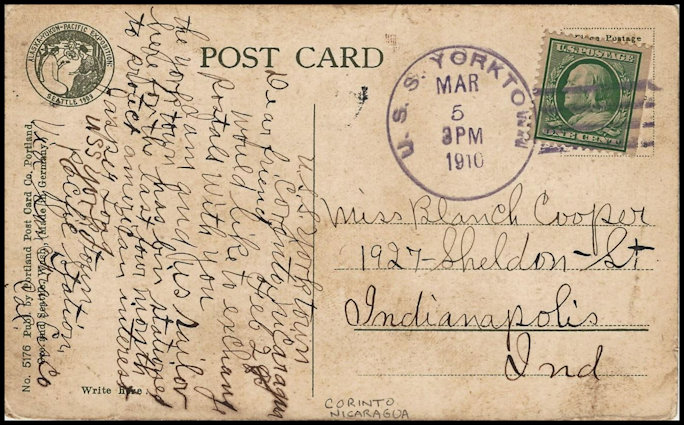 ALASKA-YUKON-PACIFIC EXPOSITION
SEATTLE 1909
POST CARD
U.S.S. YORKTOWN
MAR
5
3PM
1910
Postage
U.S. POSTAGE
ONE CENT
U.S.S Yorktown
Corinto Nicaragua
Feb 28
Dear friend
would like to exchang
postals with you
I am an U.S sailor
the yorktown has bin stationed
here for the last four months
to protect american interest
USS yorktown
Pacific Station
Miss Blanch Cooper
1927-Sheldon-St
Indianapolis
Ind
No. 5176 Publ. by Portland Post Card Co., Portland,
Ore. and Seattle, Wash. (Made in Germany.)
Write here.
CORINTO
NICARAGUA